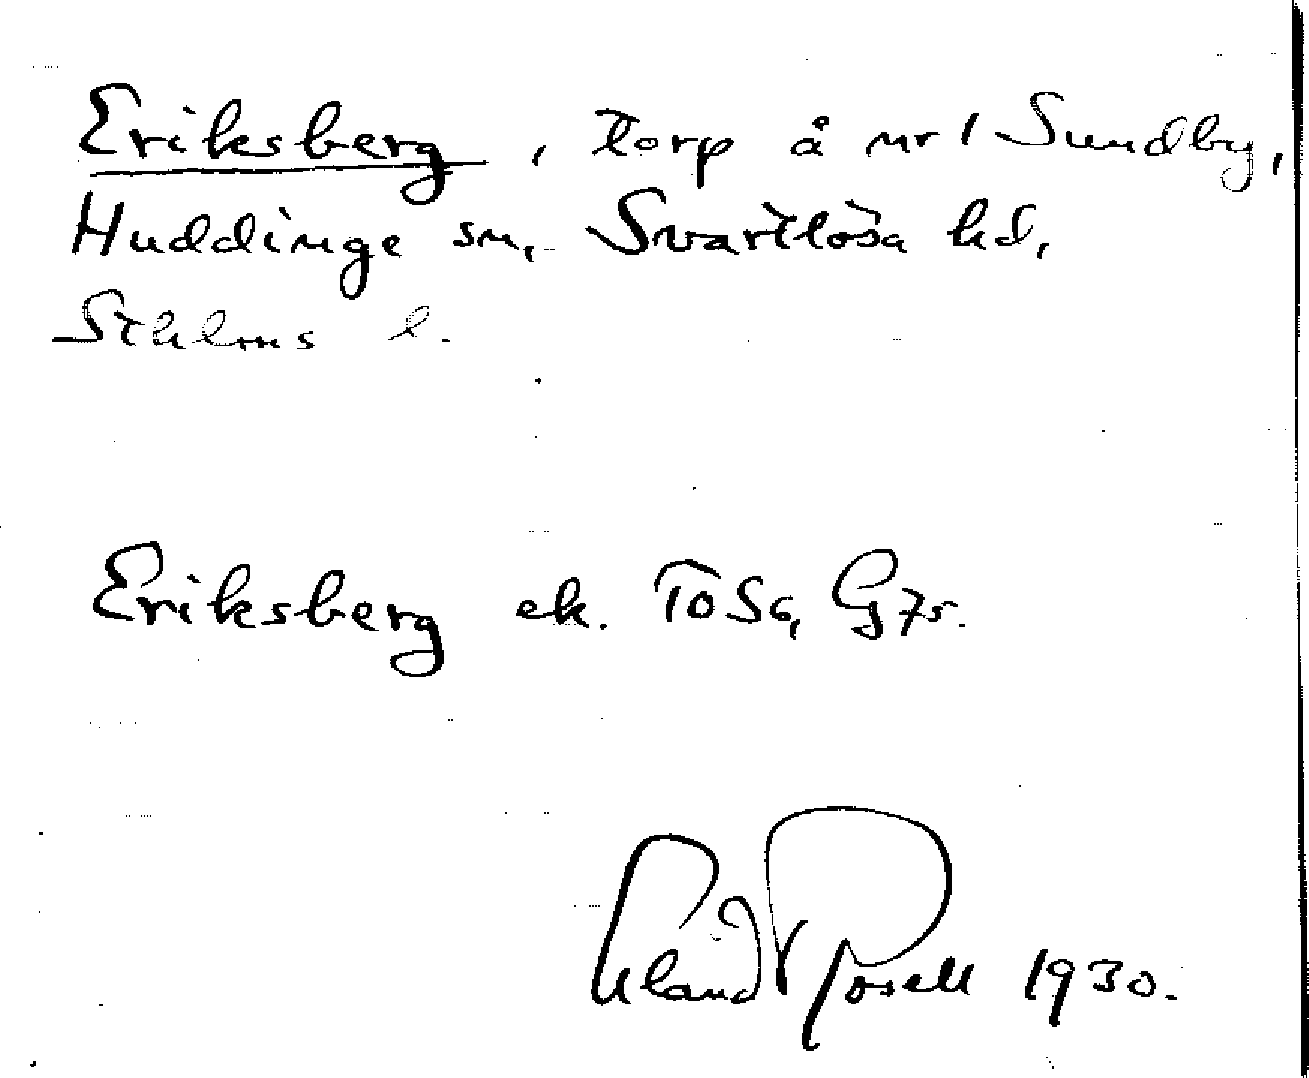 Eriksberg, torp å nr 1 Sundby,
Huddinge sn, Svartlösa hd,
Sthlms l.
Eriksberg ek. ToSg
Erland Rosell 1930.